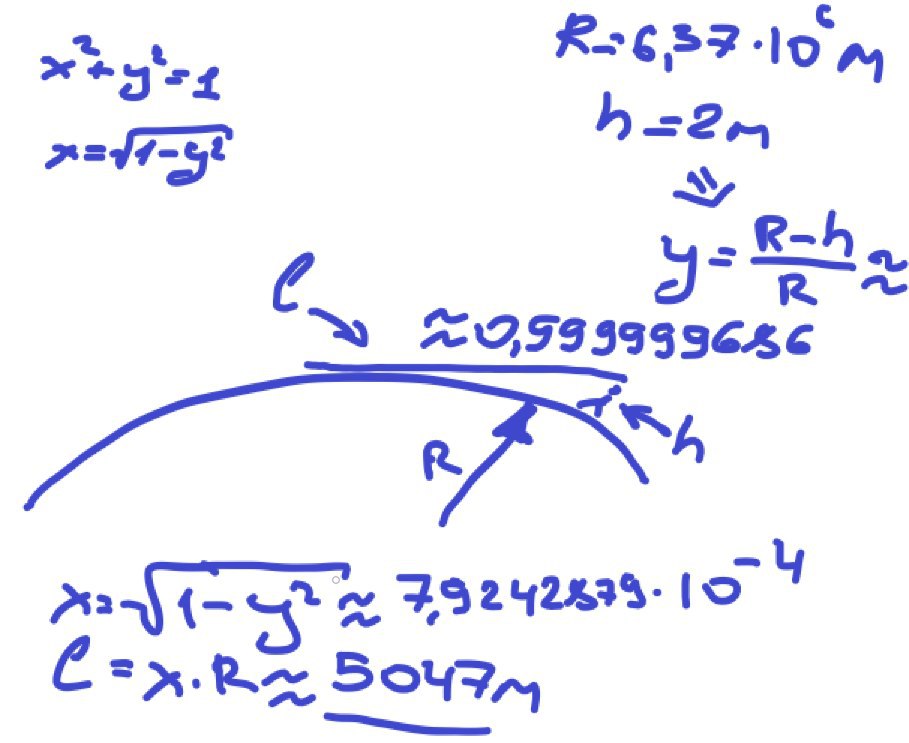 x²+y²=1
x=√(1-y²)
R=6,37·10⁶м
h=2м
⇓
y=(R-h)/R≈
≈0,999999686
C
R
h
x=√(1-y²)≈7,9242879·10⁻⁴
C=x·R≈5047м